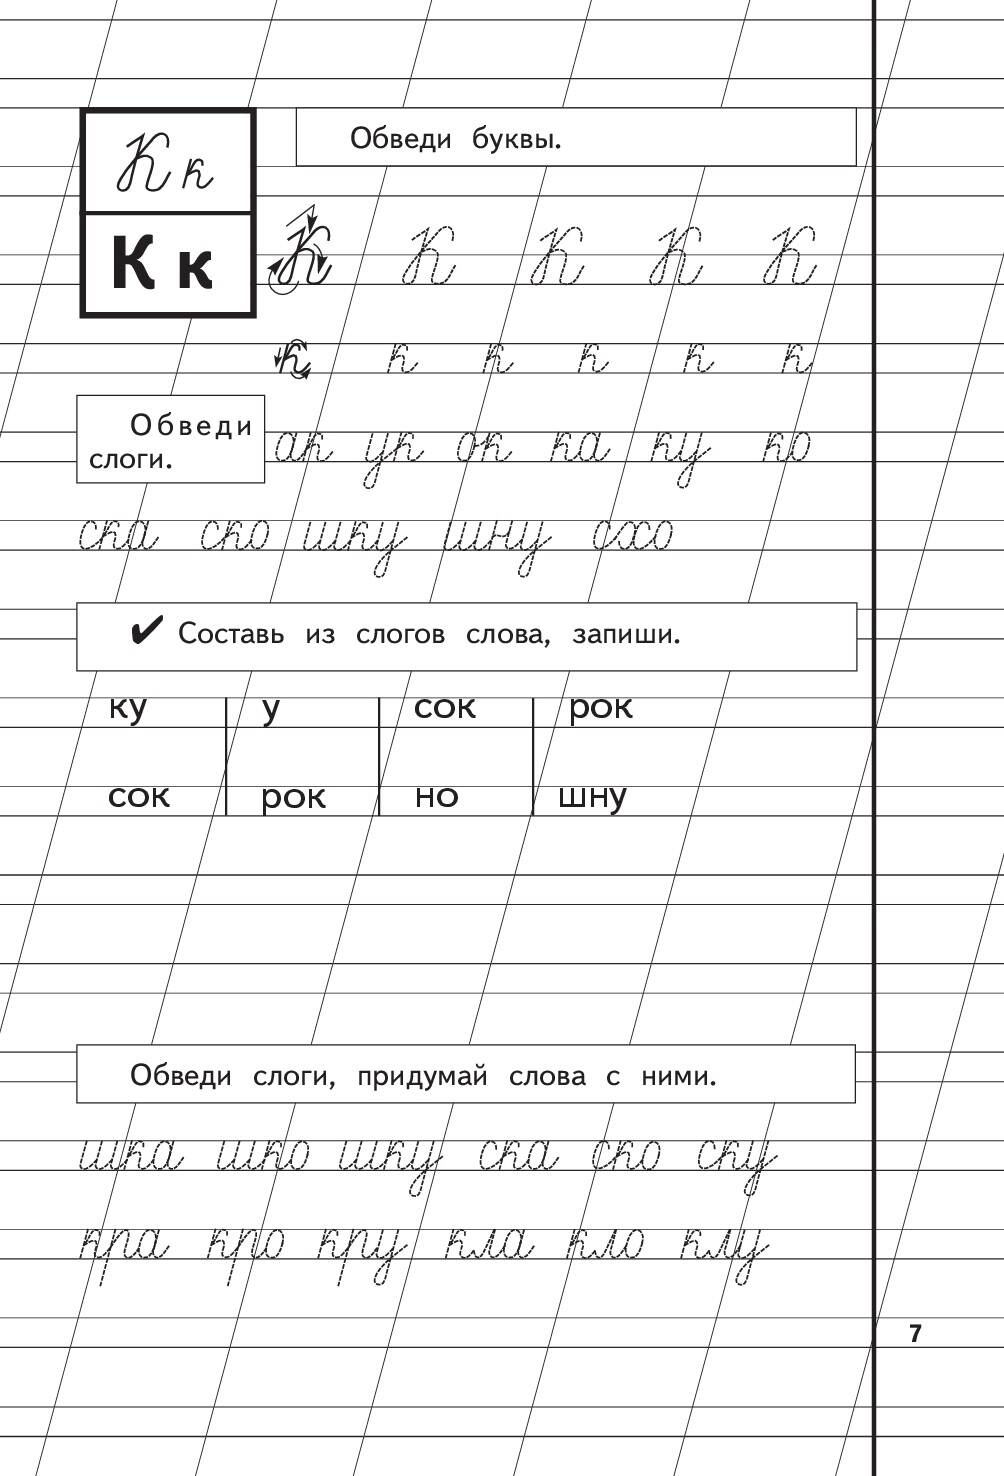 К к
Обведи буквы.
К к
К К К К К
к к к к к к
Обведи
слоги.
ак ук ок ка ку ко
ска ско шку шну схо
✔ Составь из слогов слова, запиши.
ку у сок рок
сок рок но шну
Обведи слоги, придумай слова с ними.
шка шко шку ска ско ску
кра кро кру кла кло клу
7